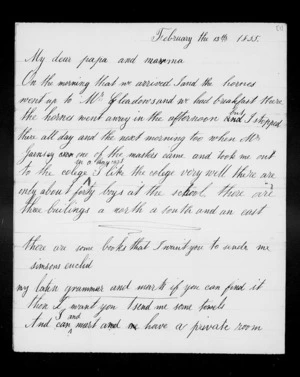 February the 13th 1855.
My dear papa and mamma
On the morning that we arrived I and the horses
went up to Mr. and we had breakfast there
the horses went away in the afternoon but I stopped
there all day and the next morning too when Mr
one of the masters came and took me out
to the colige I like the colige very well there are
only about forty boys at the school. there are
three builings a north a south and an east
there are some books that I want you to sende me
simsons euclid
my latin grammar and mark if you can find it
then I want you t send me some towels
And I can and must have a private room